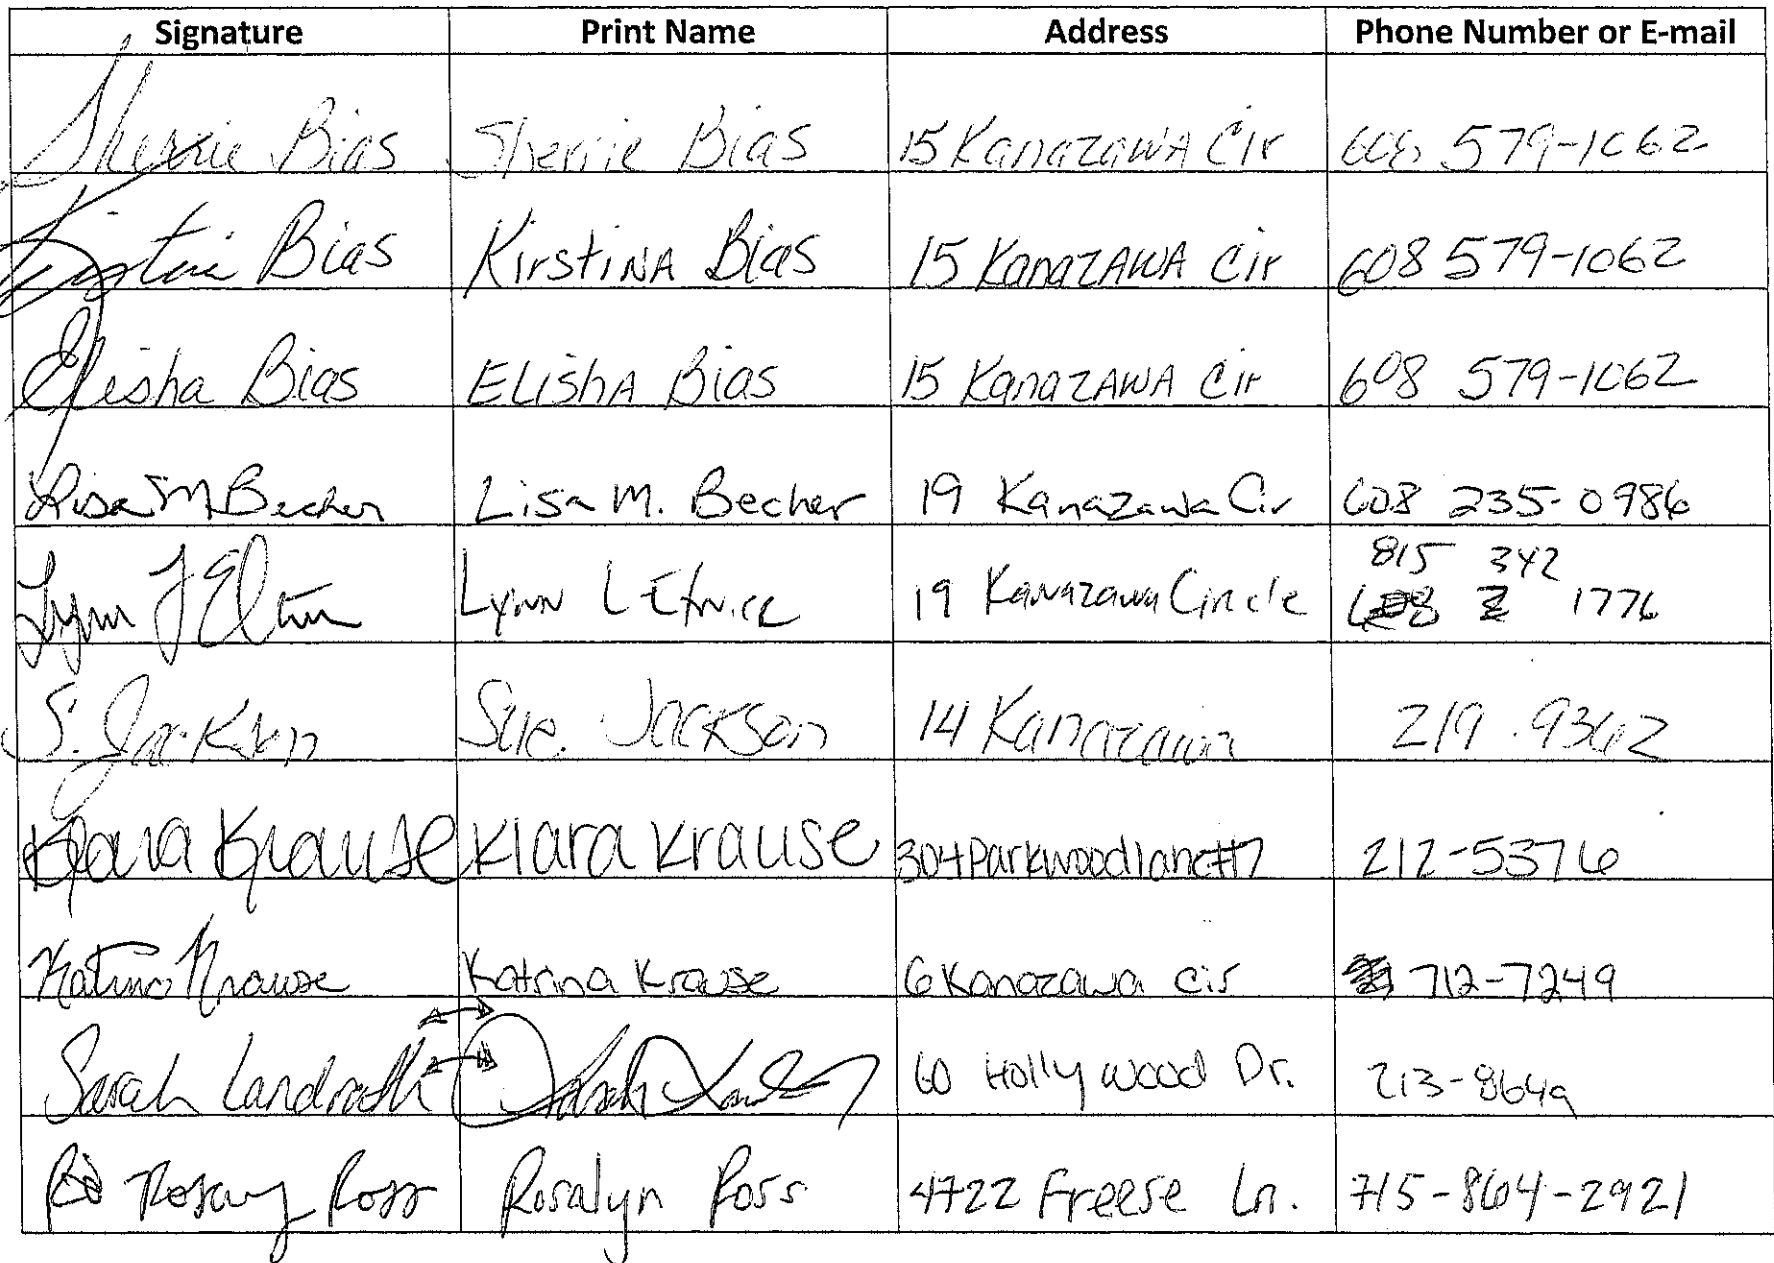 Signature Print Name Address Phone Number or E-mail
Sherrie Bias Sherrie Bias 15 KanazawA Cir 608 579-1062
Kirstina Bias KirstiNA Bias 15 KanazAWA Cir 608 579-1062
Elisha Bias ELishA Bias 15 KanazAWA Cir 608 579-1062
Lisa M Becher Lisa M. Becher 19 Kanazawa Cir 608 235-0986
815 342
Lynn L Lynn L 19 Kanazawa Circle 1776
S. Jackson Sue Jackson 14 Kanazawa 219 9362
Klara Krause Klara Krause 304 Parkwood lane #7 212-5376
Katrina Krause Katrina Krause 6 Kanazawa cir 712-7249
Sarah Landrath 60 Hollywood Dr. 213-8649
Ross Rosalyn Ross 4722 Freese Ln. 715-864-2921